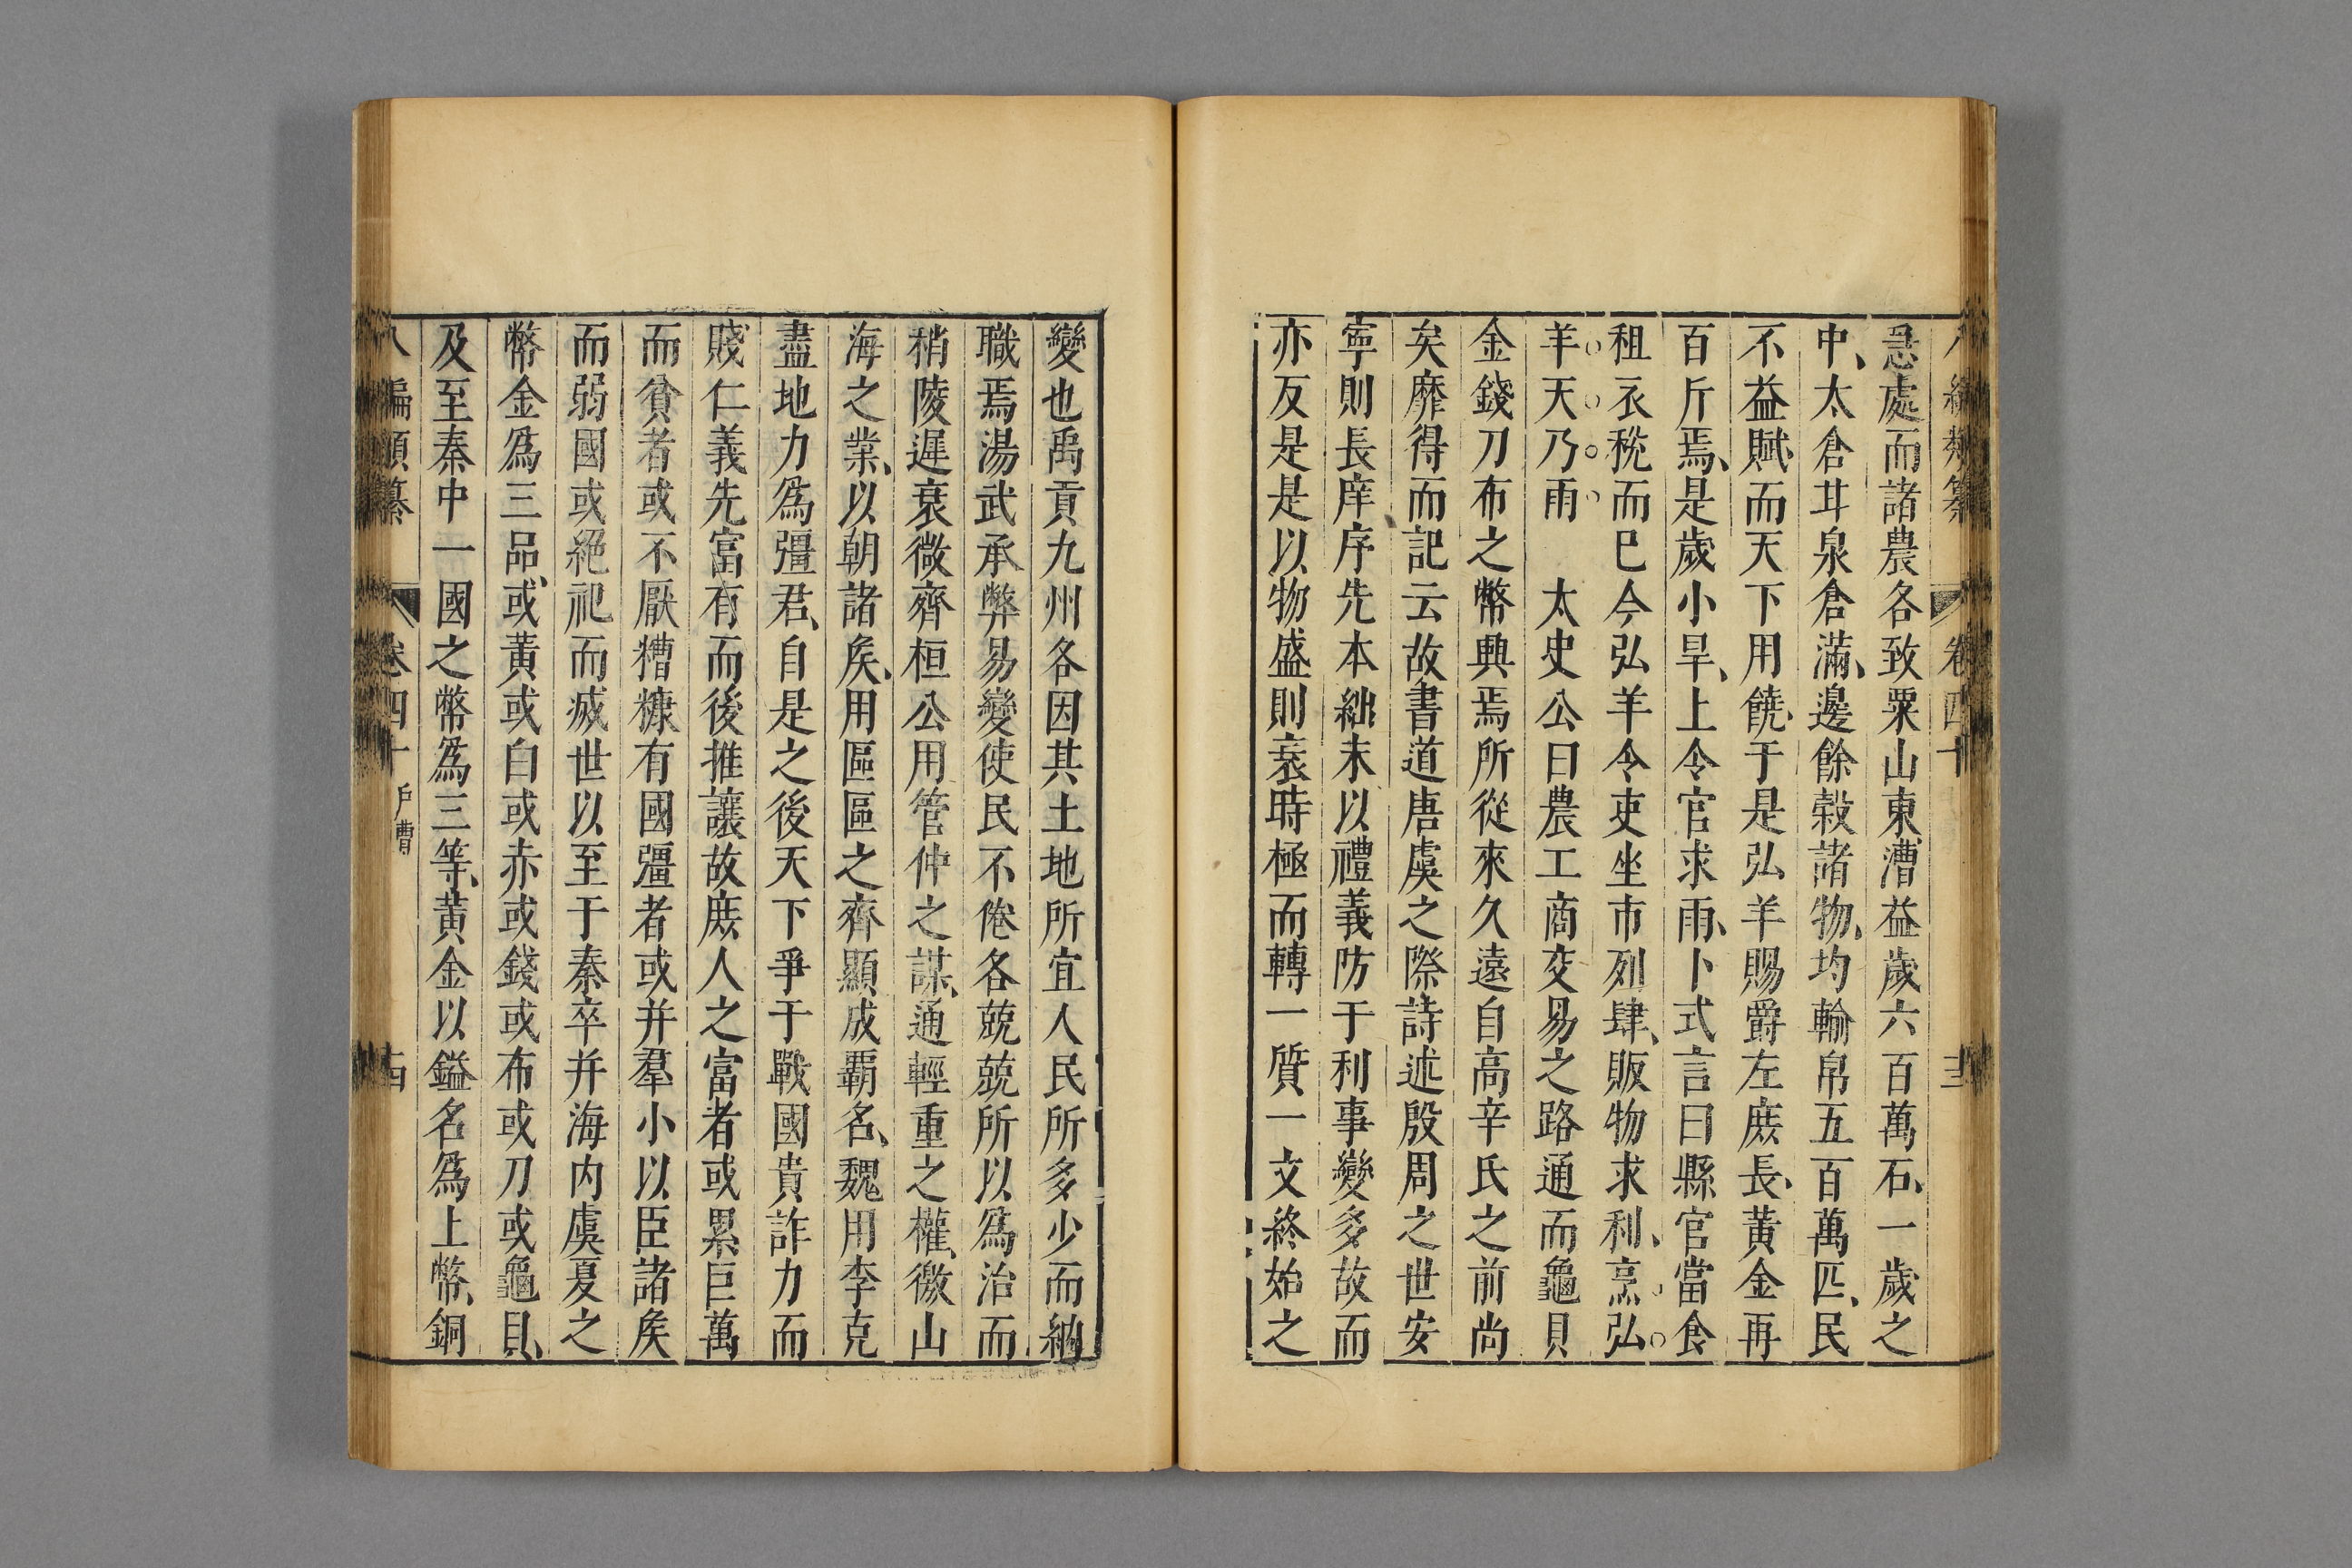 八編類纂 卷四十 十三
急處而諸農各致粟山東漕益歲六百萬石、一歲之
中、太倉甘泉倉滿、邊餘穀諸物、均輸帛五百萬匹、民
不益賦、而天下用饒、于是弘羊賜爵左庻長、黃金再
百斤焉、是歲小旱、上令官求雨、卜式言曰縣官當食
租衣稅而巳今弘羊令吏坐市列肆、販物求利、烹弘
羊天乃雨 太史公曰農工商交易之路通而龜貝
金錢刀布之幣興焉所從來久遠自高辛氏之前尚
矣靡得而記云故書道唐虞之際詩述殷周之世安
寧則長庠序先本絀末以禮義防于利事變多故而
亦反是是以物盛則衰時極而轉一質一文終始之
變也禹貢九州各因其土地所宜人民所多少而納
職焉湯武承弊易變使民不倦各兢兢所以爲治而
稍陵遲衰微齊桓公用管仲之謀、通輕重之權、徼山
海之業、以朝諸矦、用區區之齊顯成覇名、魏用李克
盡地力爲彊君、自是之後天下爭于戰國貴詐力而
賤仁義先富有而後推讓故庻人之富者或累巨萬
而貧者或不厭糟糠有國彊者或并羣小以臣諸矦
而弱國或絕祀而滅世以至于秦卒并海内虞夏之
幣金爲三品、或黃或白或赤或錢或布或刀或龜貝、
及至秦中一國之幣爲三等、黃金以鎰名爲上幣、銅
八編類纂 卷四十 戶曹 十四